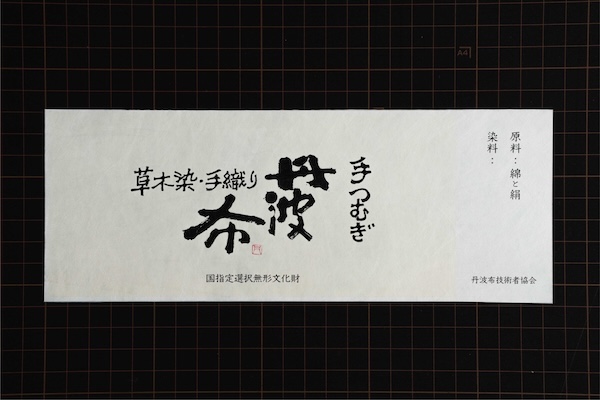 A4
原料：綿と絹
染料：
手つむぎ
丹波布
草木染・手織り
国指定選択無形文化財
丹波布技術者協会